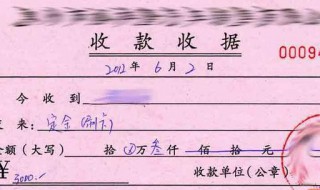 收款收据
00094
2012年6月2日
今收到
来:定金(刷卡)
金额(大写) 拾⊗万叁仟 佰 拾 元
¥ 3000.- 收款单位(公章)